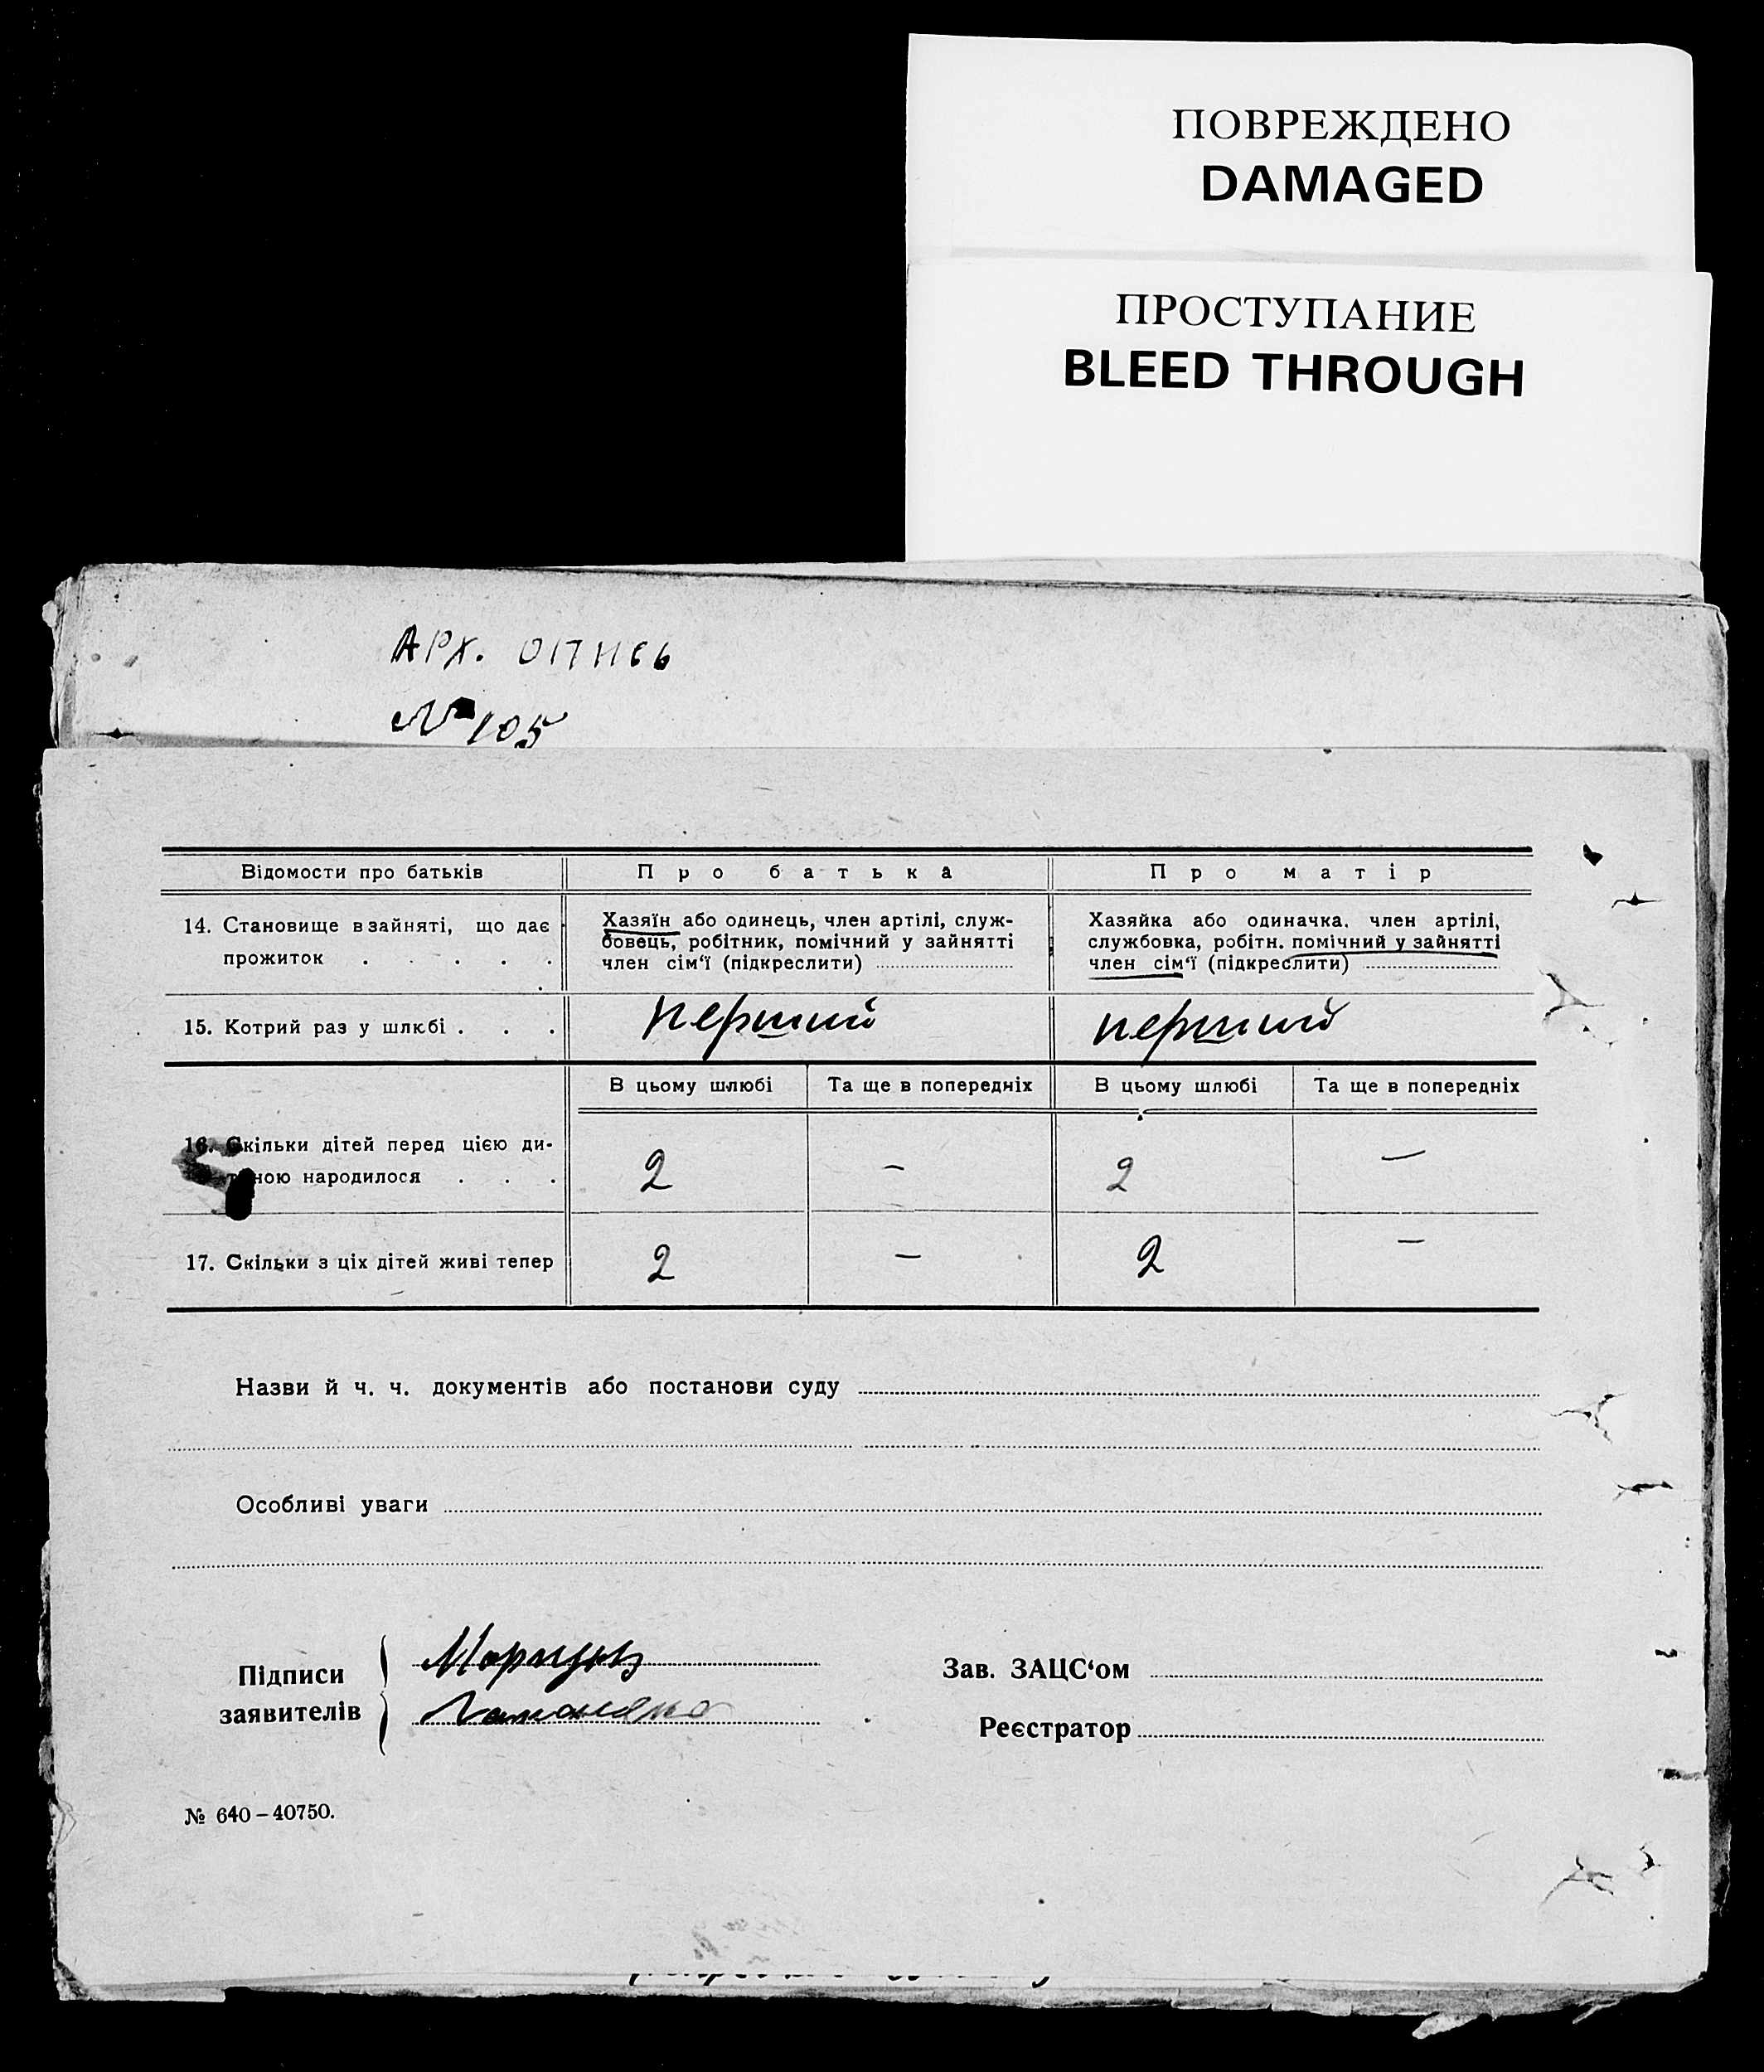 ПОВРЕЖДЕНО
DAMAGED
ПРОСТУПАНИЕ
BLEED THROUGH
АРХ. ОПИСЬ
№ 105
Відомости про батьків
Про батька
Про матір
14. Становище в зайняті, що дає
прожиток . . . . .
Хазяїн або одинець, член артілі, служ-
бовець, робітник, помічний у зайнятті
член сім‘ї (підкреслити)
Хазяйка або одиначка, член артілі,
службовка, робітн. помічний у зайнятті
член сім‘ї (підкреслити)
15. Котрий раз у шлюбі . . .
перший
перший
В цьому шлюбі
Та ще в попередніх
В цьому шлюбі
Та ще в попередніх
16. Скільки дітей перед цією ди-
тиною народилося . . .
2
–
2
–
17. Скільки з ціх дітей живі тепер
2
–
2
–
Назви й ч. ч. документів або постанови суду
Особливі уваги
Підписи
заявителів
Зав. ЗАЦС‘ом
Реєстратор
№ 640–40750.